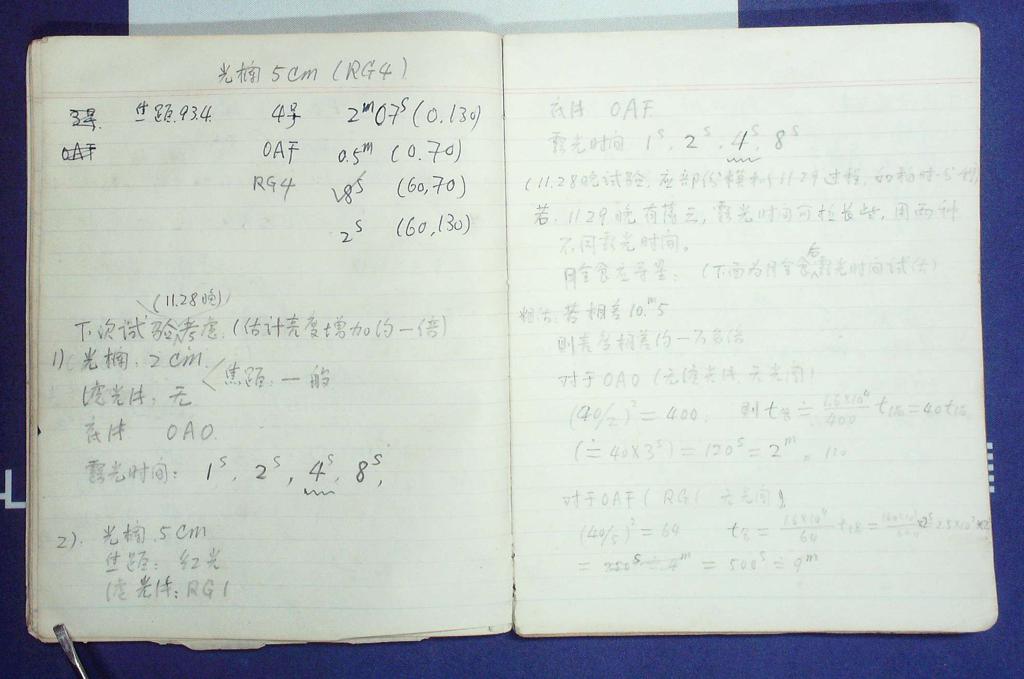 光楠 5cm (RG4)
3号 焦距.93.4 4号 2ᵐ07ˢ (0.130)
OAF OAF 0.5ᵐ (0.70)
RG4 √8ˢ (60,70)
2ˢ (60,130)
(11.28晚)
下次试验考虑.(估计亮度增加约一倍)
1) 光楠: 2cm.
焦距: 一般
滤光片: 无
底片 OAO.
露光时间: 1ˢ, 2ˢ, 4ˢ, 8ˢ,
2). 光楠. 5cm
焦距: 红光
滤光片: RG1
底片 OAF
露光时间 1ˢ, 2ˢ, 4ˢ, 8ˢ
(11.28晚试验, 应部份模和11.29过程,
若 11.29晚有薄云, 露光时间可拉长些, 用两种
不同露光时间。
月全食应 (下面为月全食后露光时间试估)
粗估: 若相差10.ᵐ5
则亮度相差约一万多倍
对于OAO (无滤光片, 无光阑)
(40/2)² = 400. 则 t食 ≐ 1.6×10⁴/400 = 40t
(≐ 40×3ˢ) = 120ˢ = 2ᵐ
对于OAF (RG1 无光阑)
(40/5)² = 64 t食 = 1.6×10⁴/64
= 250ˢ ≐ 4ᵐ = 500ˢ ≐ 9ᵐ